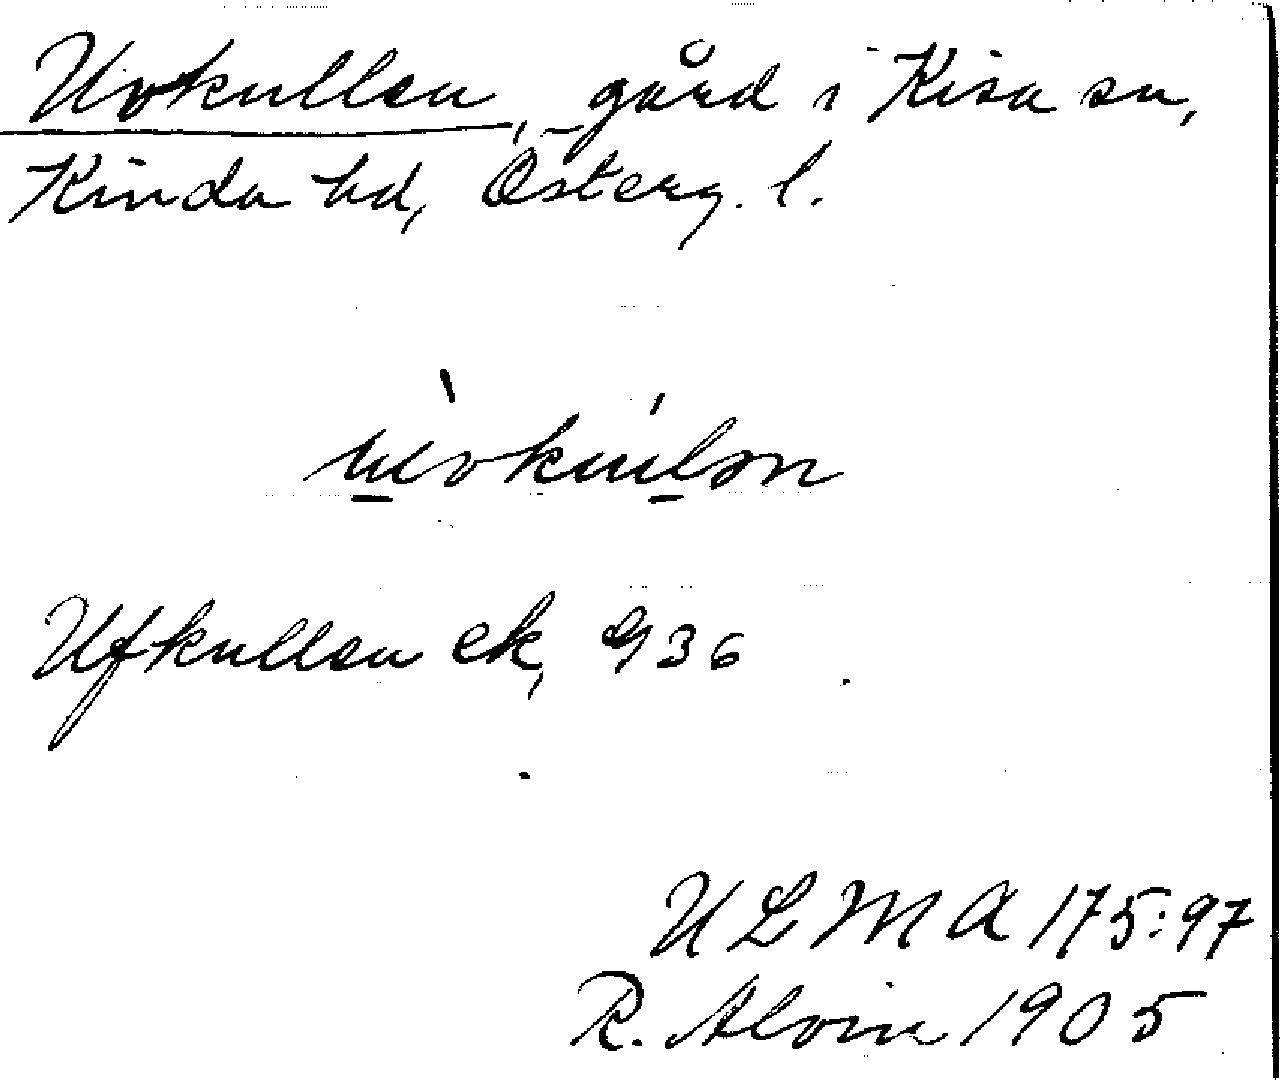 Uvkullen, gård i Kisa sn,
Kinda hd, Österg. l.
ùvkúlən
Ufkullen ek, G 36
ULMA 175:97
R. Alvin 1905